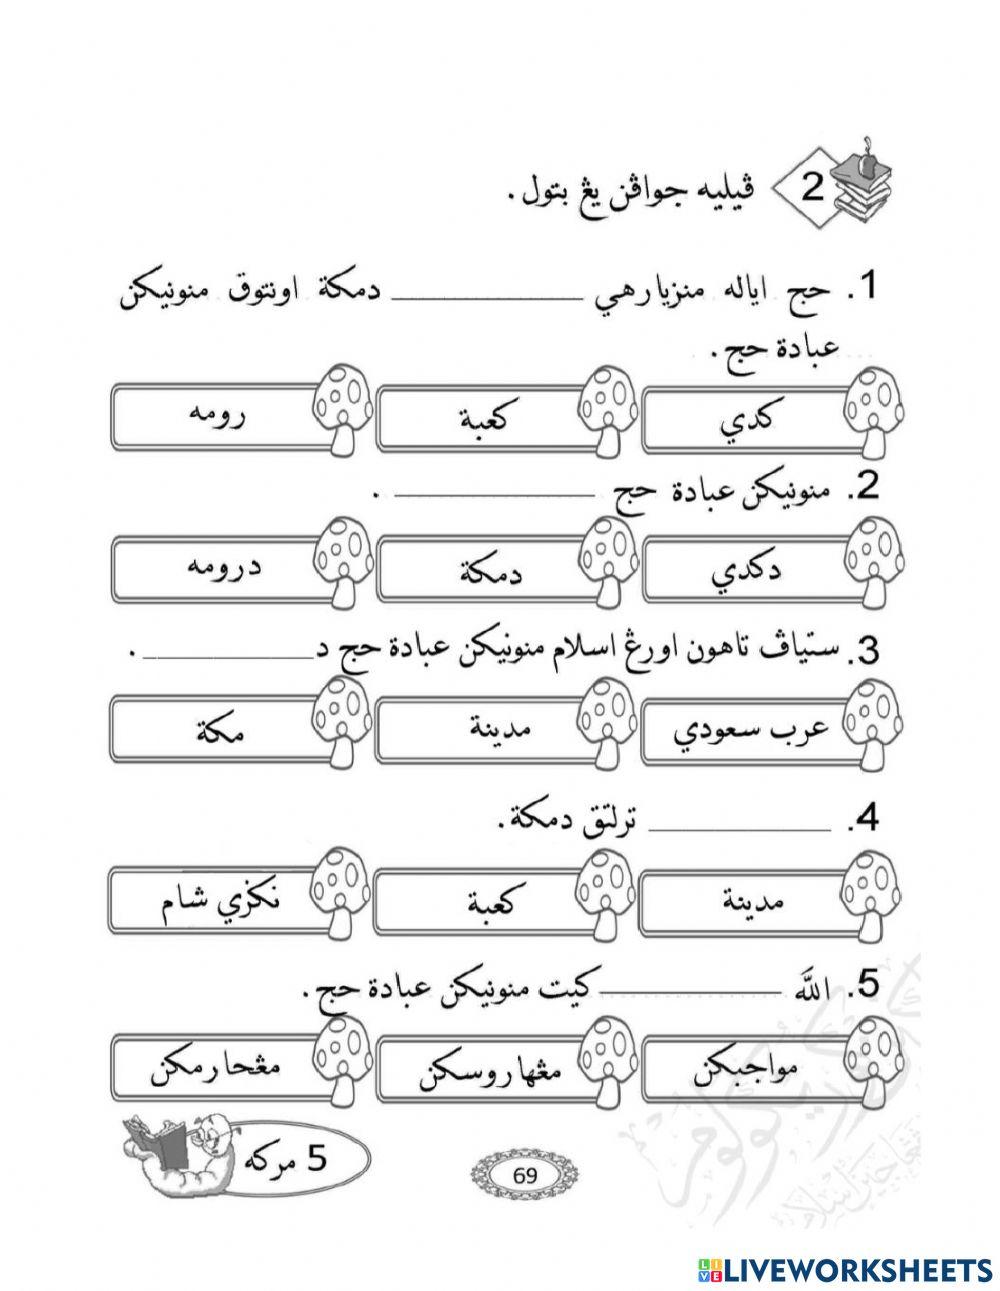 2 ڤيليه جواڤن يڠ بتول.
1. حج اياله منزيارهي ____________ دمكة اونتوق منونيكن
عبادة حج.
كدي
كعبة
رومه
2. منونيكن عبادة حج ____________ .
دكدي
دمكة
درومه
3. ستياڤ تاهون اورڠ اسلام منونيكن عبادة حج د____________ .
عرب سعودي
مدينة
مكة
4. ____________ ترلتق دمكة.
مدينة
كعبة
نكري شام
5. الله ____________ كيت منونيكن عبادة حج.
مواجبكن
مڠهاروسكن
مڠحارمكن
5 مركه
69
LIVEWORKSHEETS